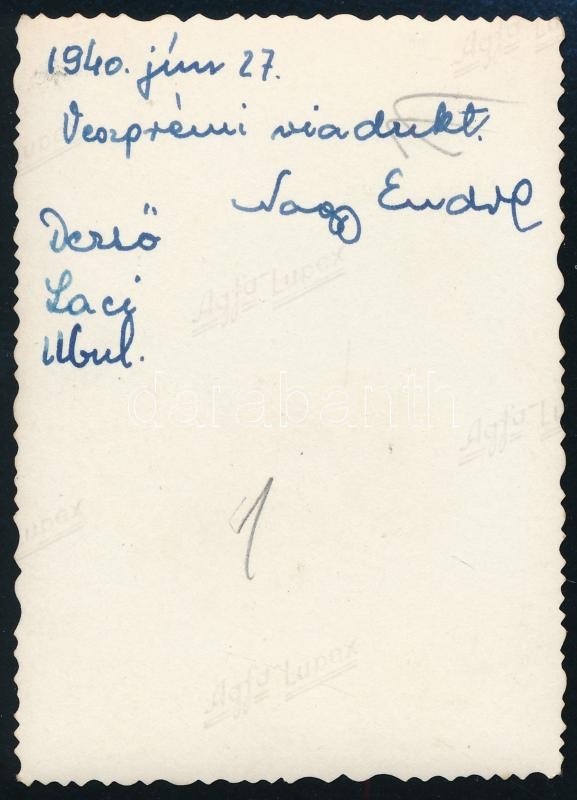 1940. jún 27.
Veszprémi viadukt.
Nagy Endre
Dezső
Laci
Ubul.
darabanth
Agfa-Lupex
Agfa-Lupex
Agfa-Lupex
Lupex
Agfa-Lupex
1